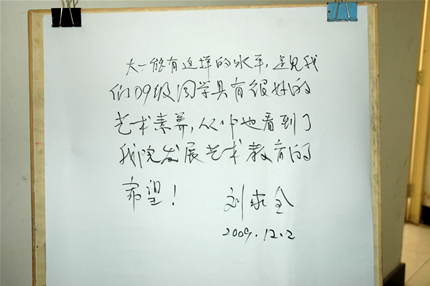 大一能有这样的水平，足见我
们09级同学具有很好的
艺术素养，从中也看到了
我院发展艺术教育的
希望！
刘求全
2009.12.2